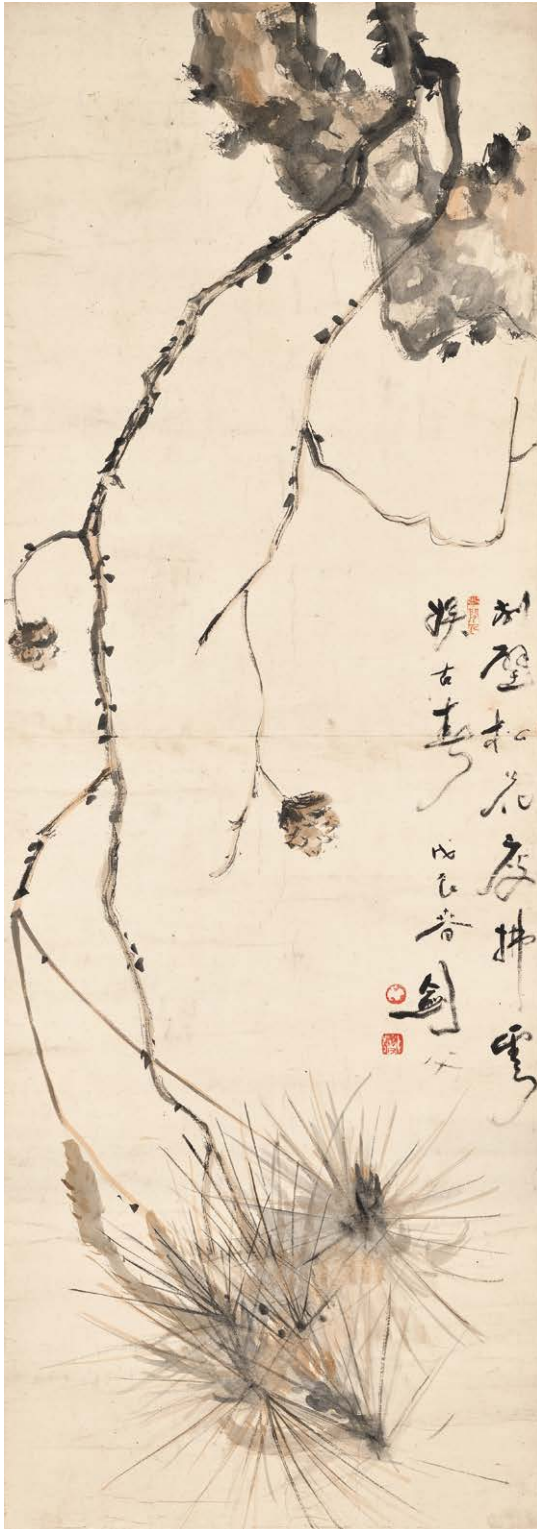 削壁松花拂雲
古壽 戊辰春 劍父